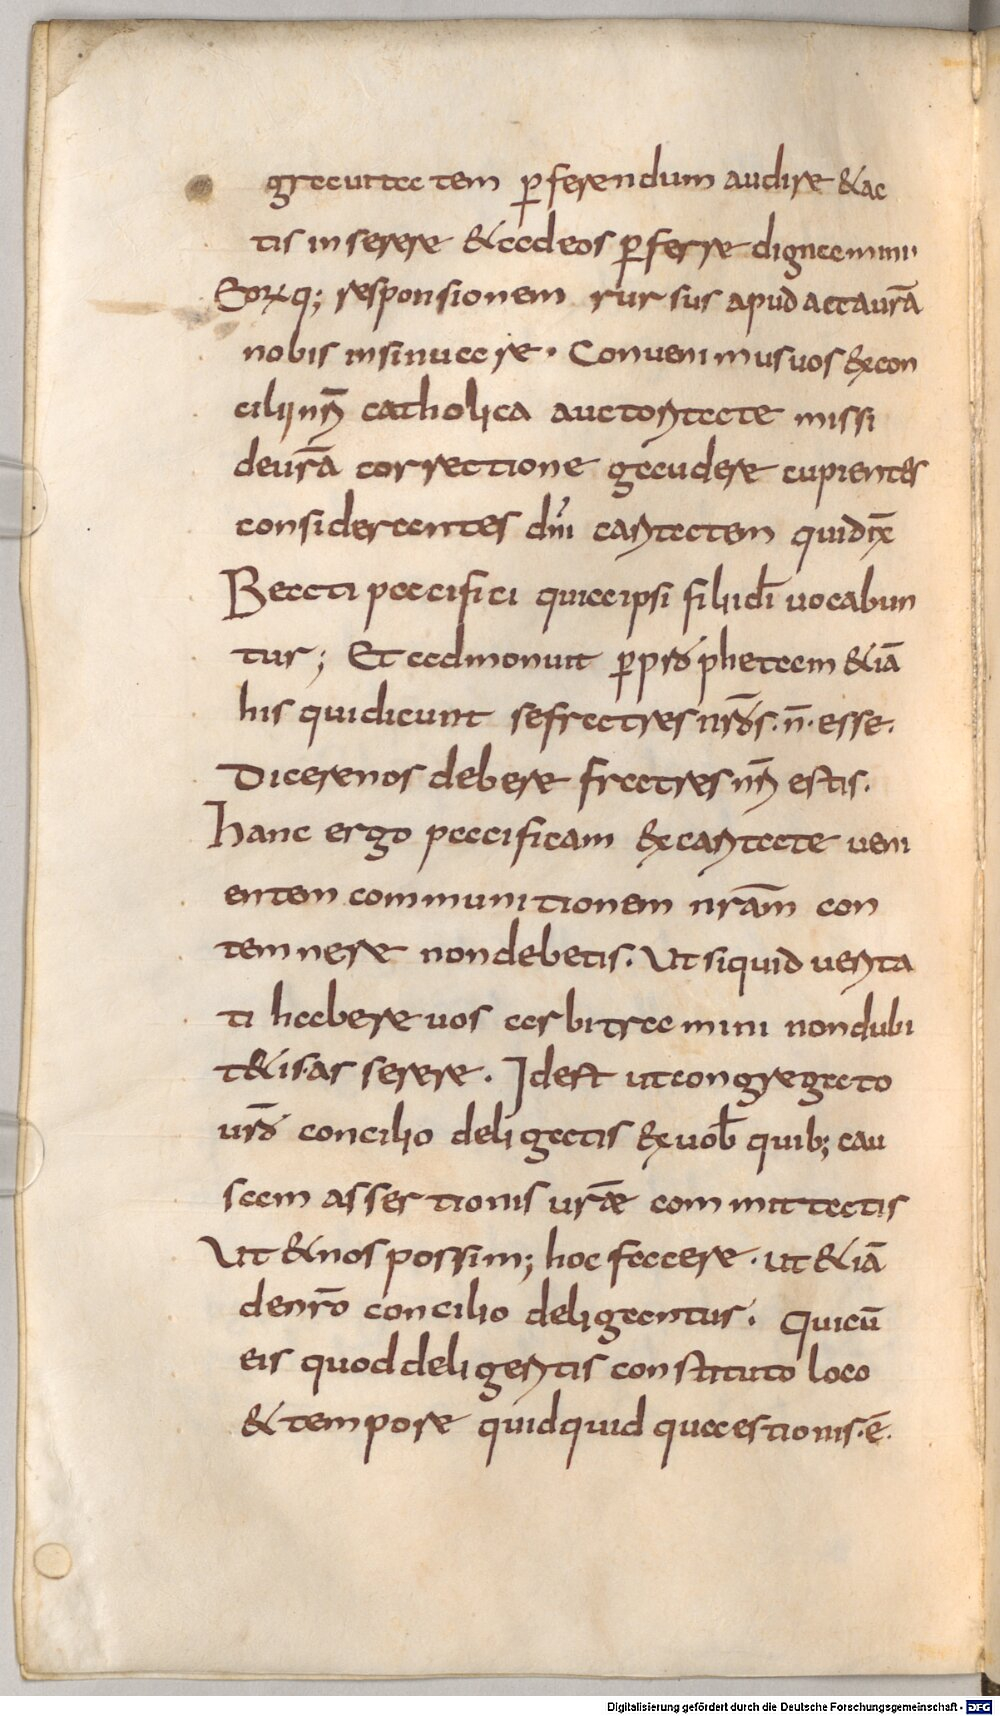 grauitatem ꝑferendum audire &ac
tis inserere &adeos ꝑferre dignaemini
Eorꝝq; responsionem rursus apud acta ur̄a
nobis insinuare. Conuenimus uos &xcon
cilii nr̄i catholica auctoritate missi
deur̄a correctione gaudere cupientes
considerantes dn̄i caritatem quidix̄
Beati pacifici quiaipsi filiidī uocabun
tur; Et admonuit ꝑprophetam &iā
his quidicunt sefratres nr̄os .n̄. esse.
Dicerenos debere fratres nr̄i estis.
hanc ergo pacificam &xcaritate ueni
entem communitionem nrām con
temnere nondebetis. Ut siquid uerita
ti habere uos arbitramini nondubi
t&is asserere. Idest utcongregato
ur̄o concilio deligatis &xuob̄ quib; cau
sam assertionis urāe committatis
Ut &nos possim; hoc facere. ut &iā
denr̄o concilio deligantur. Quicū
eis quod deligeritis constituto loco
&tempore quidquid quaestionis .ē.
Digitalisierung gefördert durch die Deutsche Forschungsgemeinschaft - DFG